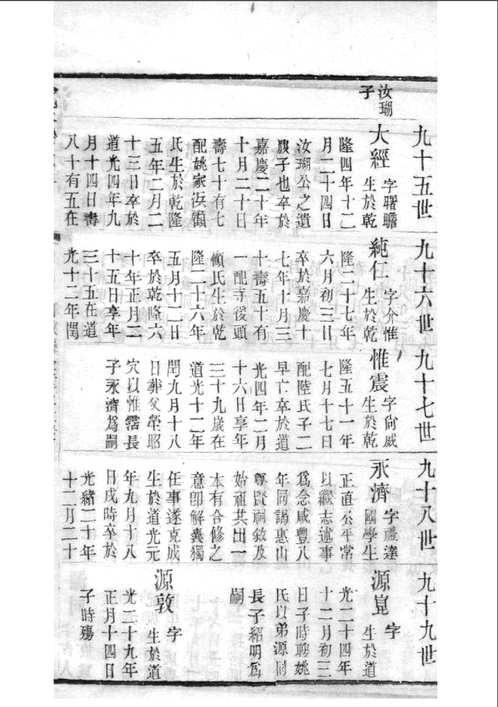 九十五世
汝瑚子
大經 字曙瞻
生於乾
隆四年十二
月二十四日
汝瑚公之遺
腹子也卒於
嘉慶二十年
十月二十日
壽七十有七
配姚家
氏生於乾隆
五年二月二
十三日卒於
道光四年九
月十四日壽
八十有五在
九十六世
純仁 字介惟
生於乾
隆二十七年
六月初三日
卒於嘉慶十
七年十月三
十壽五十有
一配寺後頭
顧氏生於乾
隆二十六年
五月十二日
卒於乾隆六
十年正月二
十五日享年
三十五在道
光十二年閏
九十七世
惟震 字尙威
生於乾
隆五十一年
七月十七日
配陸氏子二
早亡卒於道
光四年二月
十六日享年
三十九歲在
道光十二年
閏九月十八
日葬父塋昭
穴以惟霈長
子永濟爲嗣
九十八世
永濟 字禮達
國學生
正直公平常
以繼志述事
爲念咸豐八
年同謁惠山
尊賢祠敘及
始祖共出一
本有合修之
意卽解義獨
任事遂克成
生於道光元
年九月十八
日戌時卒於
光緒二十年
十二月二十
九十九世
源崑 字
生於道
光二十四年
十二月初三
日子時聘姚
氏以弟源同
長子紹明爲
嗣
源敦 字
生於道
光二十九年
正月十四日
子時殤